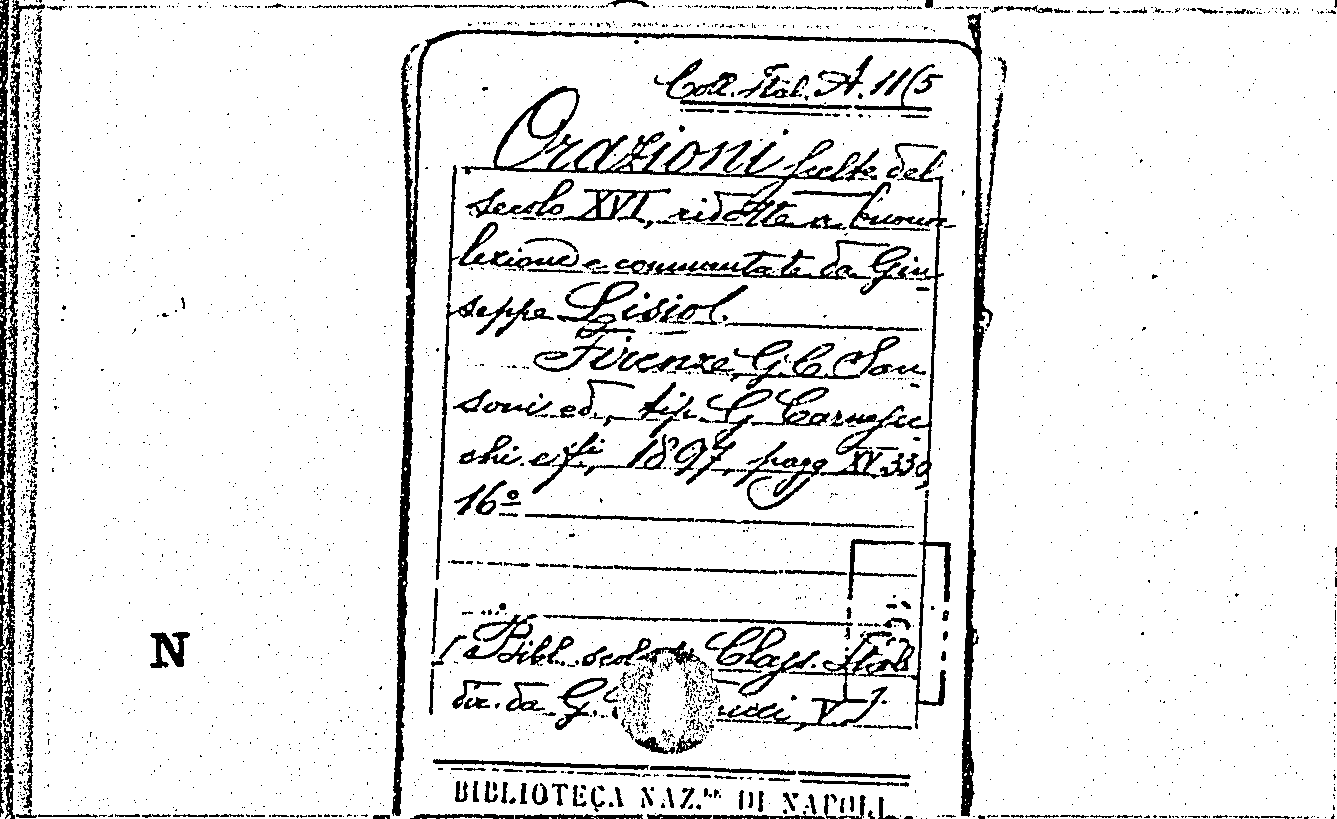 Coll. Ital. A. 11(5
Orazioni scelte del
secolo XVI, ridotte a buona
lezione e commentate da Giu
seppe Lisio.
Firenze, G. C. San
soni ed., tip. G. Carnesec
chi e fi, 1897, pagg XV.339
16º
N
(Bibl. scol. di Class. Ital.
dir. da G. ucci, V).
BIBLIOTECA NAZ.le DI NAPOLI